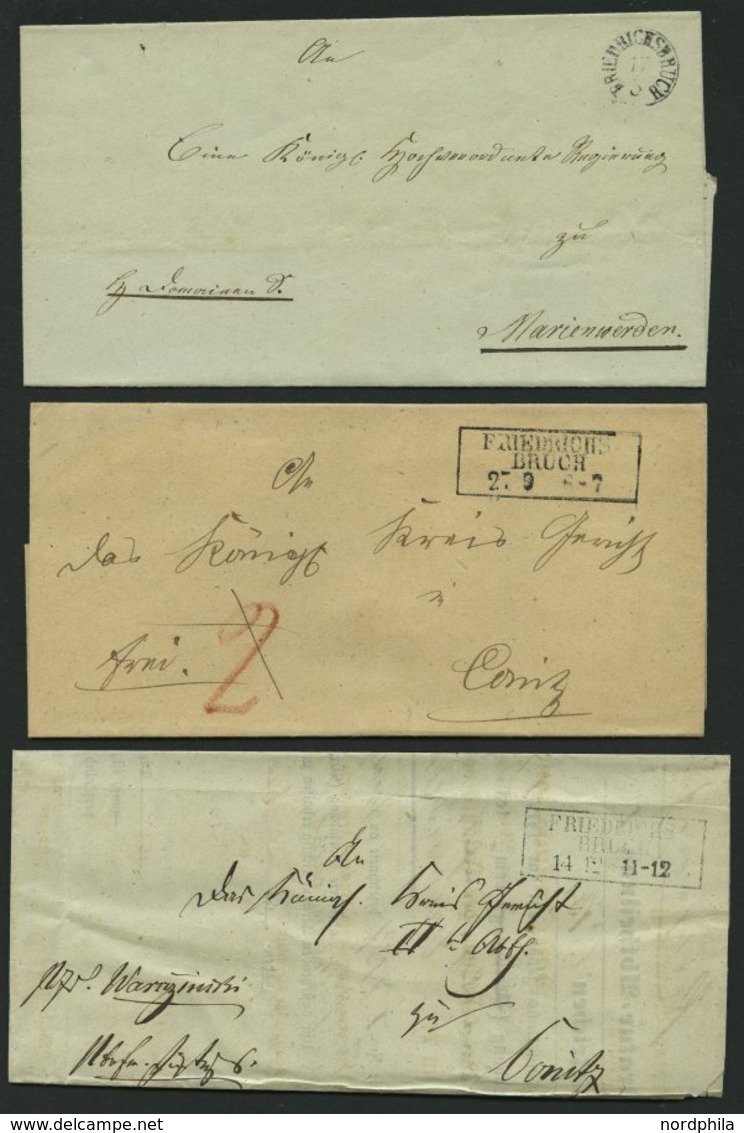 FRIEDRICHSBRUCH
An
Eine Königl. Hochverordnete Regierung
zu
Domainen S.
Marienwerder.
FRIEDRICHS-
BRUCH
27 9 6-7
An
das Königl Kreis Gericht
in
frei.
2
Conitz
FRIEDRICHS-
BRUCH
14 12 11-12
An
Das Königl. Kreis Gericht
II te Abth.
zu
Conitz
nordphila